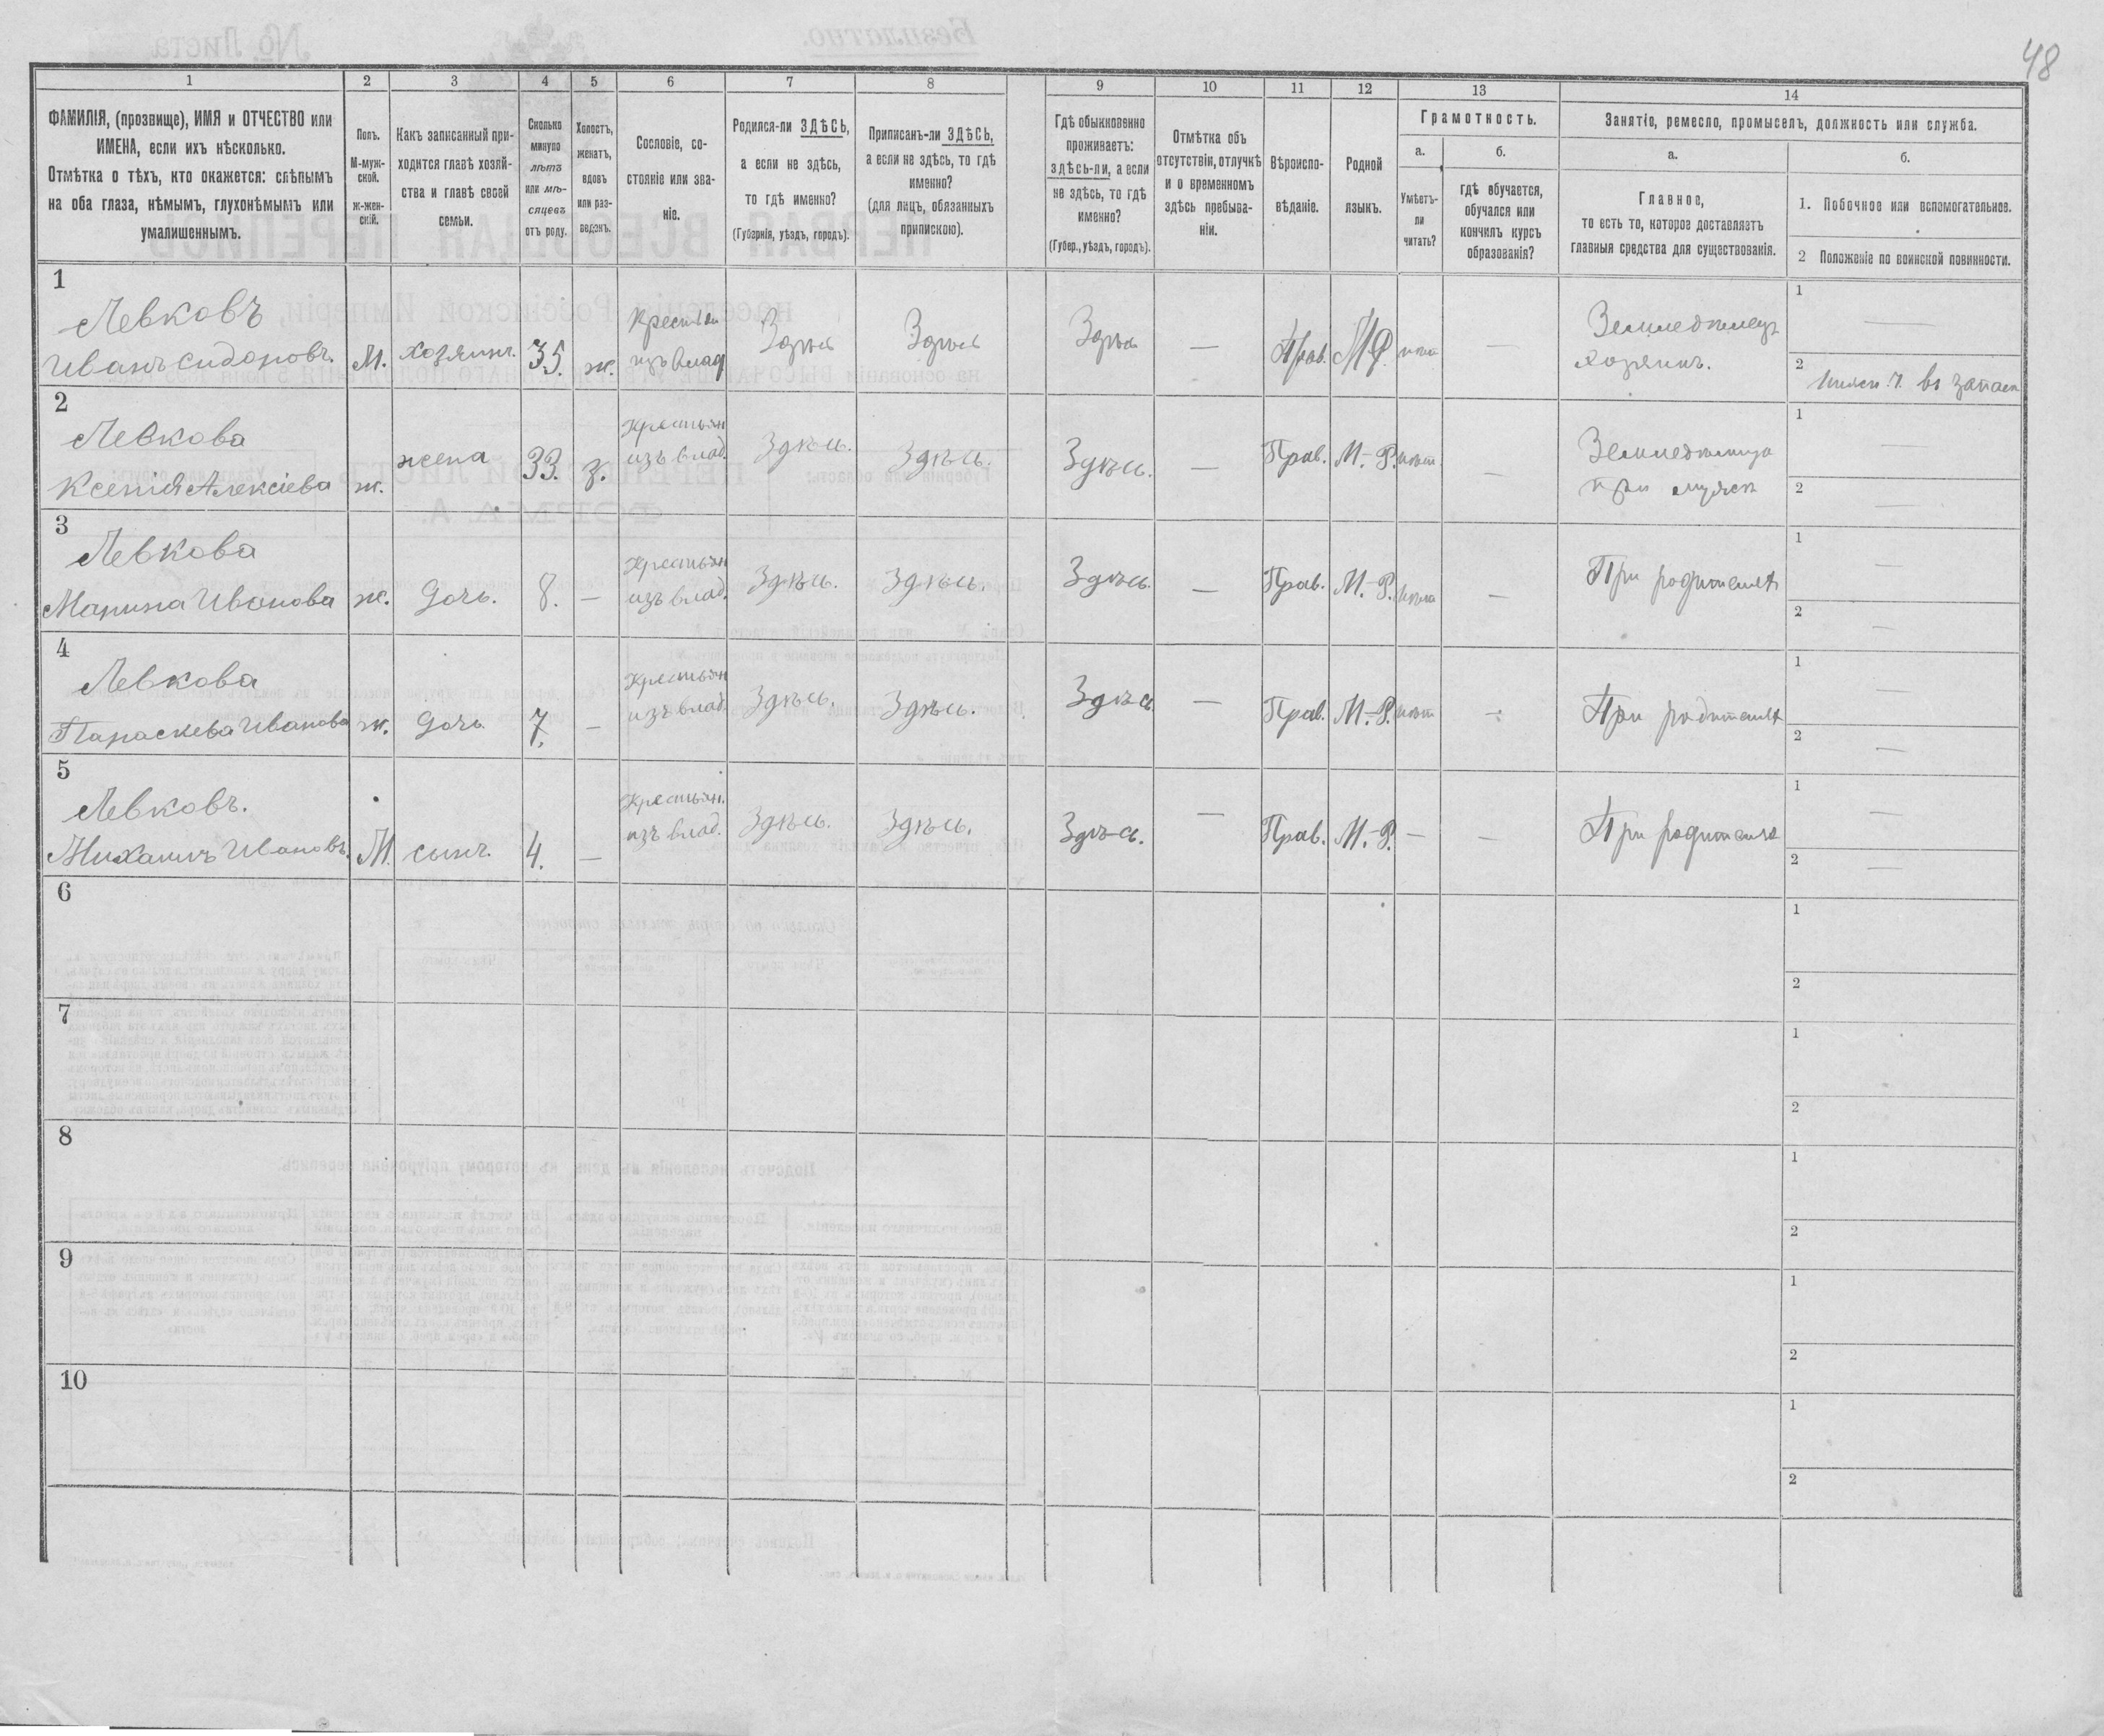 48
1 2 3 4 5 6 7 8 9 10 11 12 13 14
ФАМИЛІЯ, (прозвище), ИМЯ и ОТЧЕСТВО или
ИМЕНА, если ихъ нѣсколько.
Отмѣтка о тѣхъ, кто окажется: слѣпымъ
на оба глаза, нѣмымъ, глухонѣмымъ или
умалишеннымъ.
Полъ.
М-муж-
ской.
Ж-жен-
скій.
Какъ записанный при-
ходится главѣ хозяй-
ства и главѣ своей
семьи.
Сколько
минуло
лѣтъ
или мѣ-
сяцевъ
отъ роду.
Холостъ,
женатъ,
вдовъ
или раз-
веденъ.
Сословіе, со-
стояніе или зва-
ніе.
Родился-ли ЗДѢСЬ,
а если не здѣсь,
то гдѣ именно?
(Губернія, уѣздъ, городъ).
Приписанъ-ли ЗДѢСЬ,
а если не здѣсь, то гдѣ
именно?
(для лицъ, обязанныхъ
припискою).
Гдѣ обыкновенно
проживаетъ:
здѣсь-ли, а если
не здѣсь, то гдѣ
именно?
(Губер., уѣздъ, городъ).
Отмѣтка объ
отсутствіи, отлучкѣ
и о временномъ
здѣсь пребыва-
ніи.
Вѣроиспо-
вѣданіе.
Родной
языкъ.
Грамотность.
а.
Умѣетъ-
ли
читать?
б.
гдѣ обучается,
обучался или
кончилъ курсъ
образованія?
Занятіе, ремесло, промыселъ, должность или служба.
а.
Главное,
то есть то, которое доставляетъ
главныя средства для существованія.
б.
1. Побочное или вспомогательное.
2 Положеніе по воинской повинности.
1
Левковъ
Иванъ Сидоровъ. М. хозяинъ. 35. ж.
изъ влад Здѣсь Здѣсь Здѣсь — Прав. М.Р. —
Земледѣлецъ
хозяинъ.
1 —
2 въ запасѣ
2
Левкова
Ксенія Алексіева ж. жена 33. з.
Крестьян
изъ влад. Здѣсь. Здѣсь. Здѣсь. — Прав. М.-Р. нѣт. —
при мужѣ
1 —
2 —
3
Левкова
Марина Иванова ж. дочь. 8. —
Крестьян
изъ влад. Здѣсь. Здѣсь. Здѣсь. — Прав. М.-Р. —
При родителѣ
1 —
2 —
4
Левкова
Параскева Иванова ж. дочь 7. —
Крестьян
изъ влад. Здѣсь. Здѣсь. Здѣсь — Прав. М.-Р. нѣт —
При родителѣ
1 —
2 —
5
Левковъ.
Михаилъ Ивановъ. М. сынъ. 4. —
Крестьян.
изъ влад. Здѣсь. Здѣсь. Здѣсь. — Прав. М.-Р. — —
При родителѣ
1 —
2 —
6
1
2
7
1
2
8
1
2
9
1
2
10
1
2